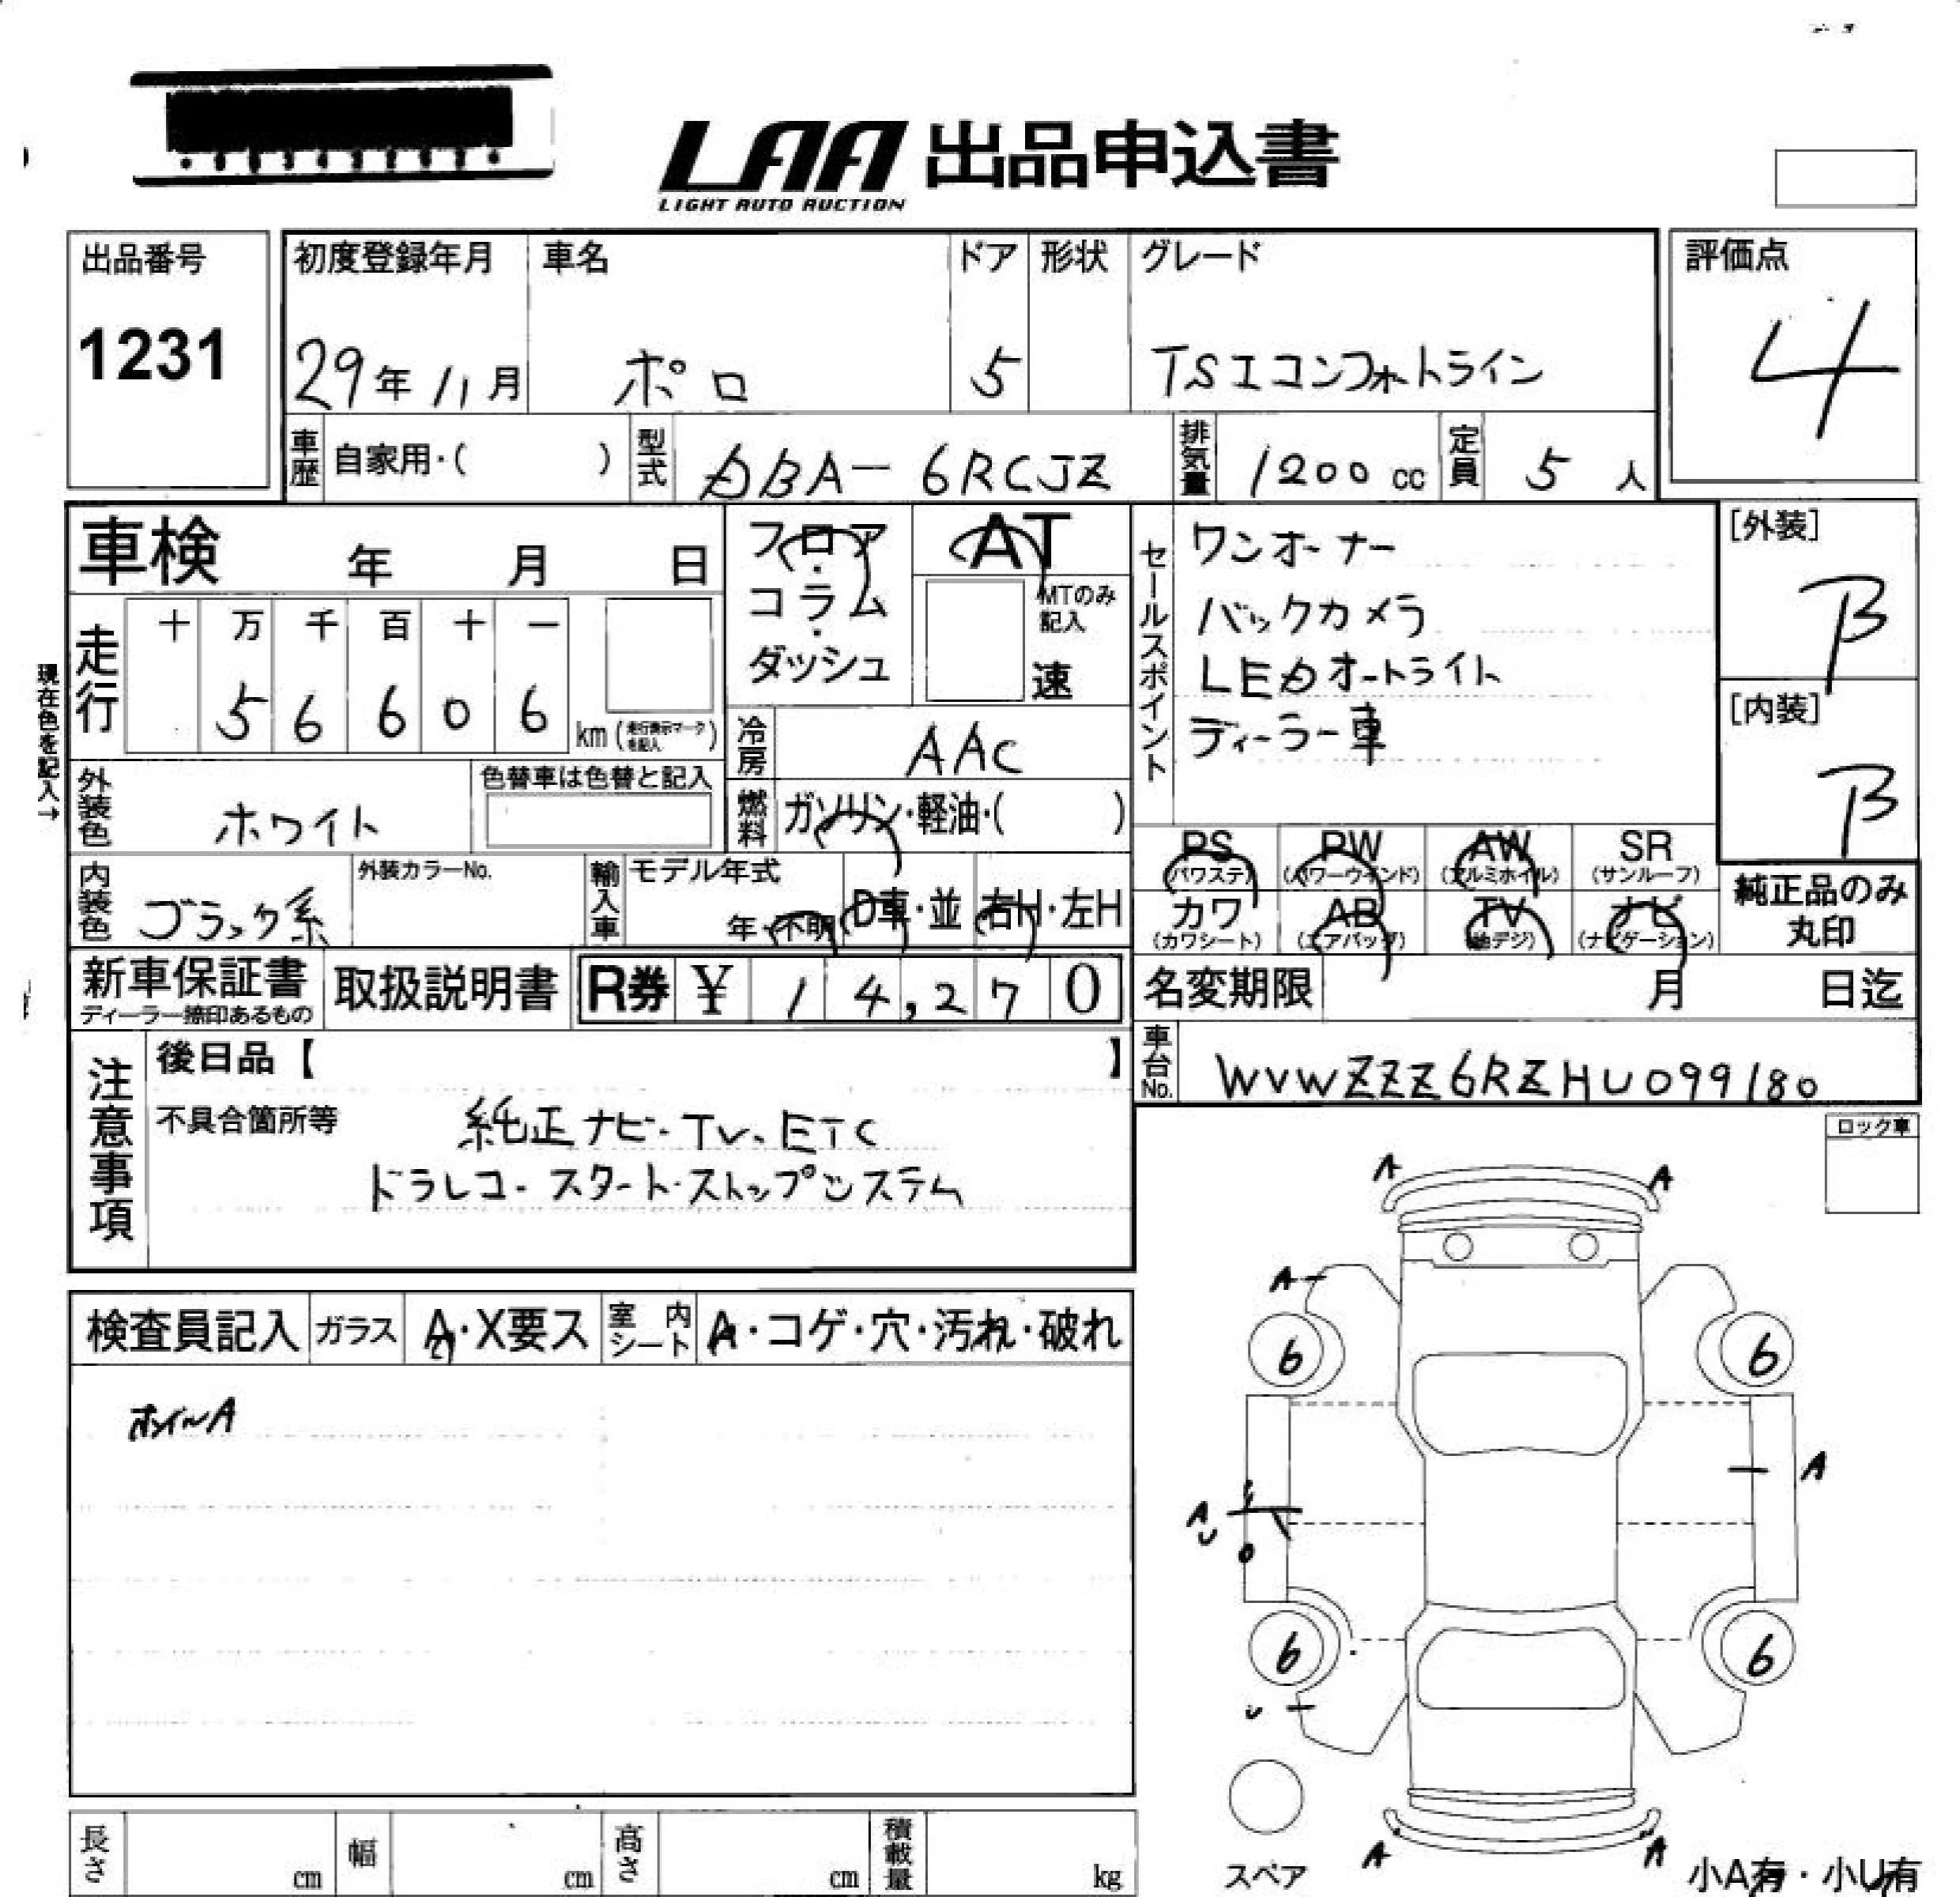 LAA 出品申込書
LIGHT AUTO AUCTION
出品番号
1231
初度登録年月 車名 ドア 形状 グレード
29年 11月 ポロ 5 TSIコンフォートライン
評価点
4
車歴 自家用・( ) 型式 DBA-6RCJZ 排気量 1200 cc 定員 5 人
車検 年 月 日
フロア・コラム・ダッシュ
AT
MTのみ記入
速
セールスポイント
ワンオーナー
バックカメラ
LEDオートライト
ディーラー車
[外装]
B
[内装]
B
現在色を記入→
走行 十 万 千 百 十 一
5 6 6 0 6 km (走行表示マークを記入)
冷房 AAC
外装色 ホワイト 色替車は色替と記入
燃料 ガソリン・軽油・( )
内装色 ブラック系 外装カラーNo. 輸入車 モデル年式 年・不明 D車・並 右H・左H
PS (パワステ) PW (パワーウインド) AW (アルミホイル) SR (サンルーフ)
カワ (カワシート) AB (エアバッグ) TV (地デジ) ナビ (ナビゲーション)
純正品のみ丸印
新車保証書 ディーラー捺印あるもの 取扱説明書 R券 ¥ 14,270
名変期限 月 日迄
車台No. WVWZZZ6RZHU099180
注意事項
後日品【 】
不具合箇所等 純正ナビ・TV、ETC
ドラレコ・スタート・ストップシステム
ロック車
検査員記入 ガラス A・X要ス 室内シート A・コゲ・穴・汚れ・破れ
ホイールA
A A
A
6 6
A A
U
6 6
U
A A
スペア
小A有・小U有
長さ cm 幅 cm 高さ cm 積載量 kg